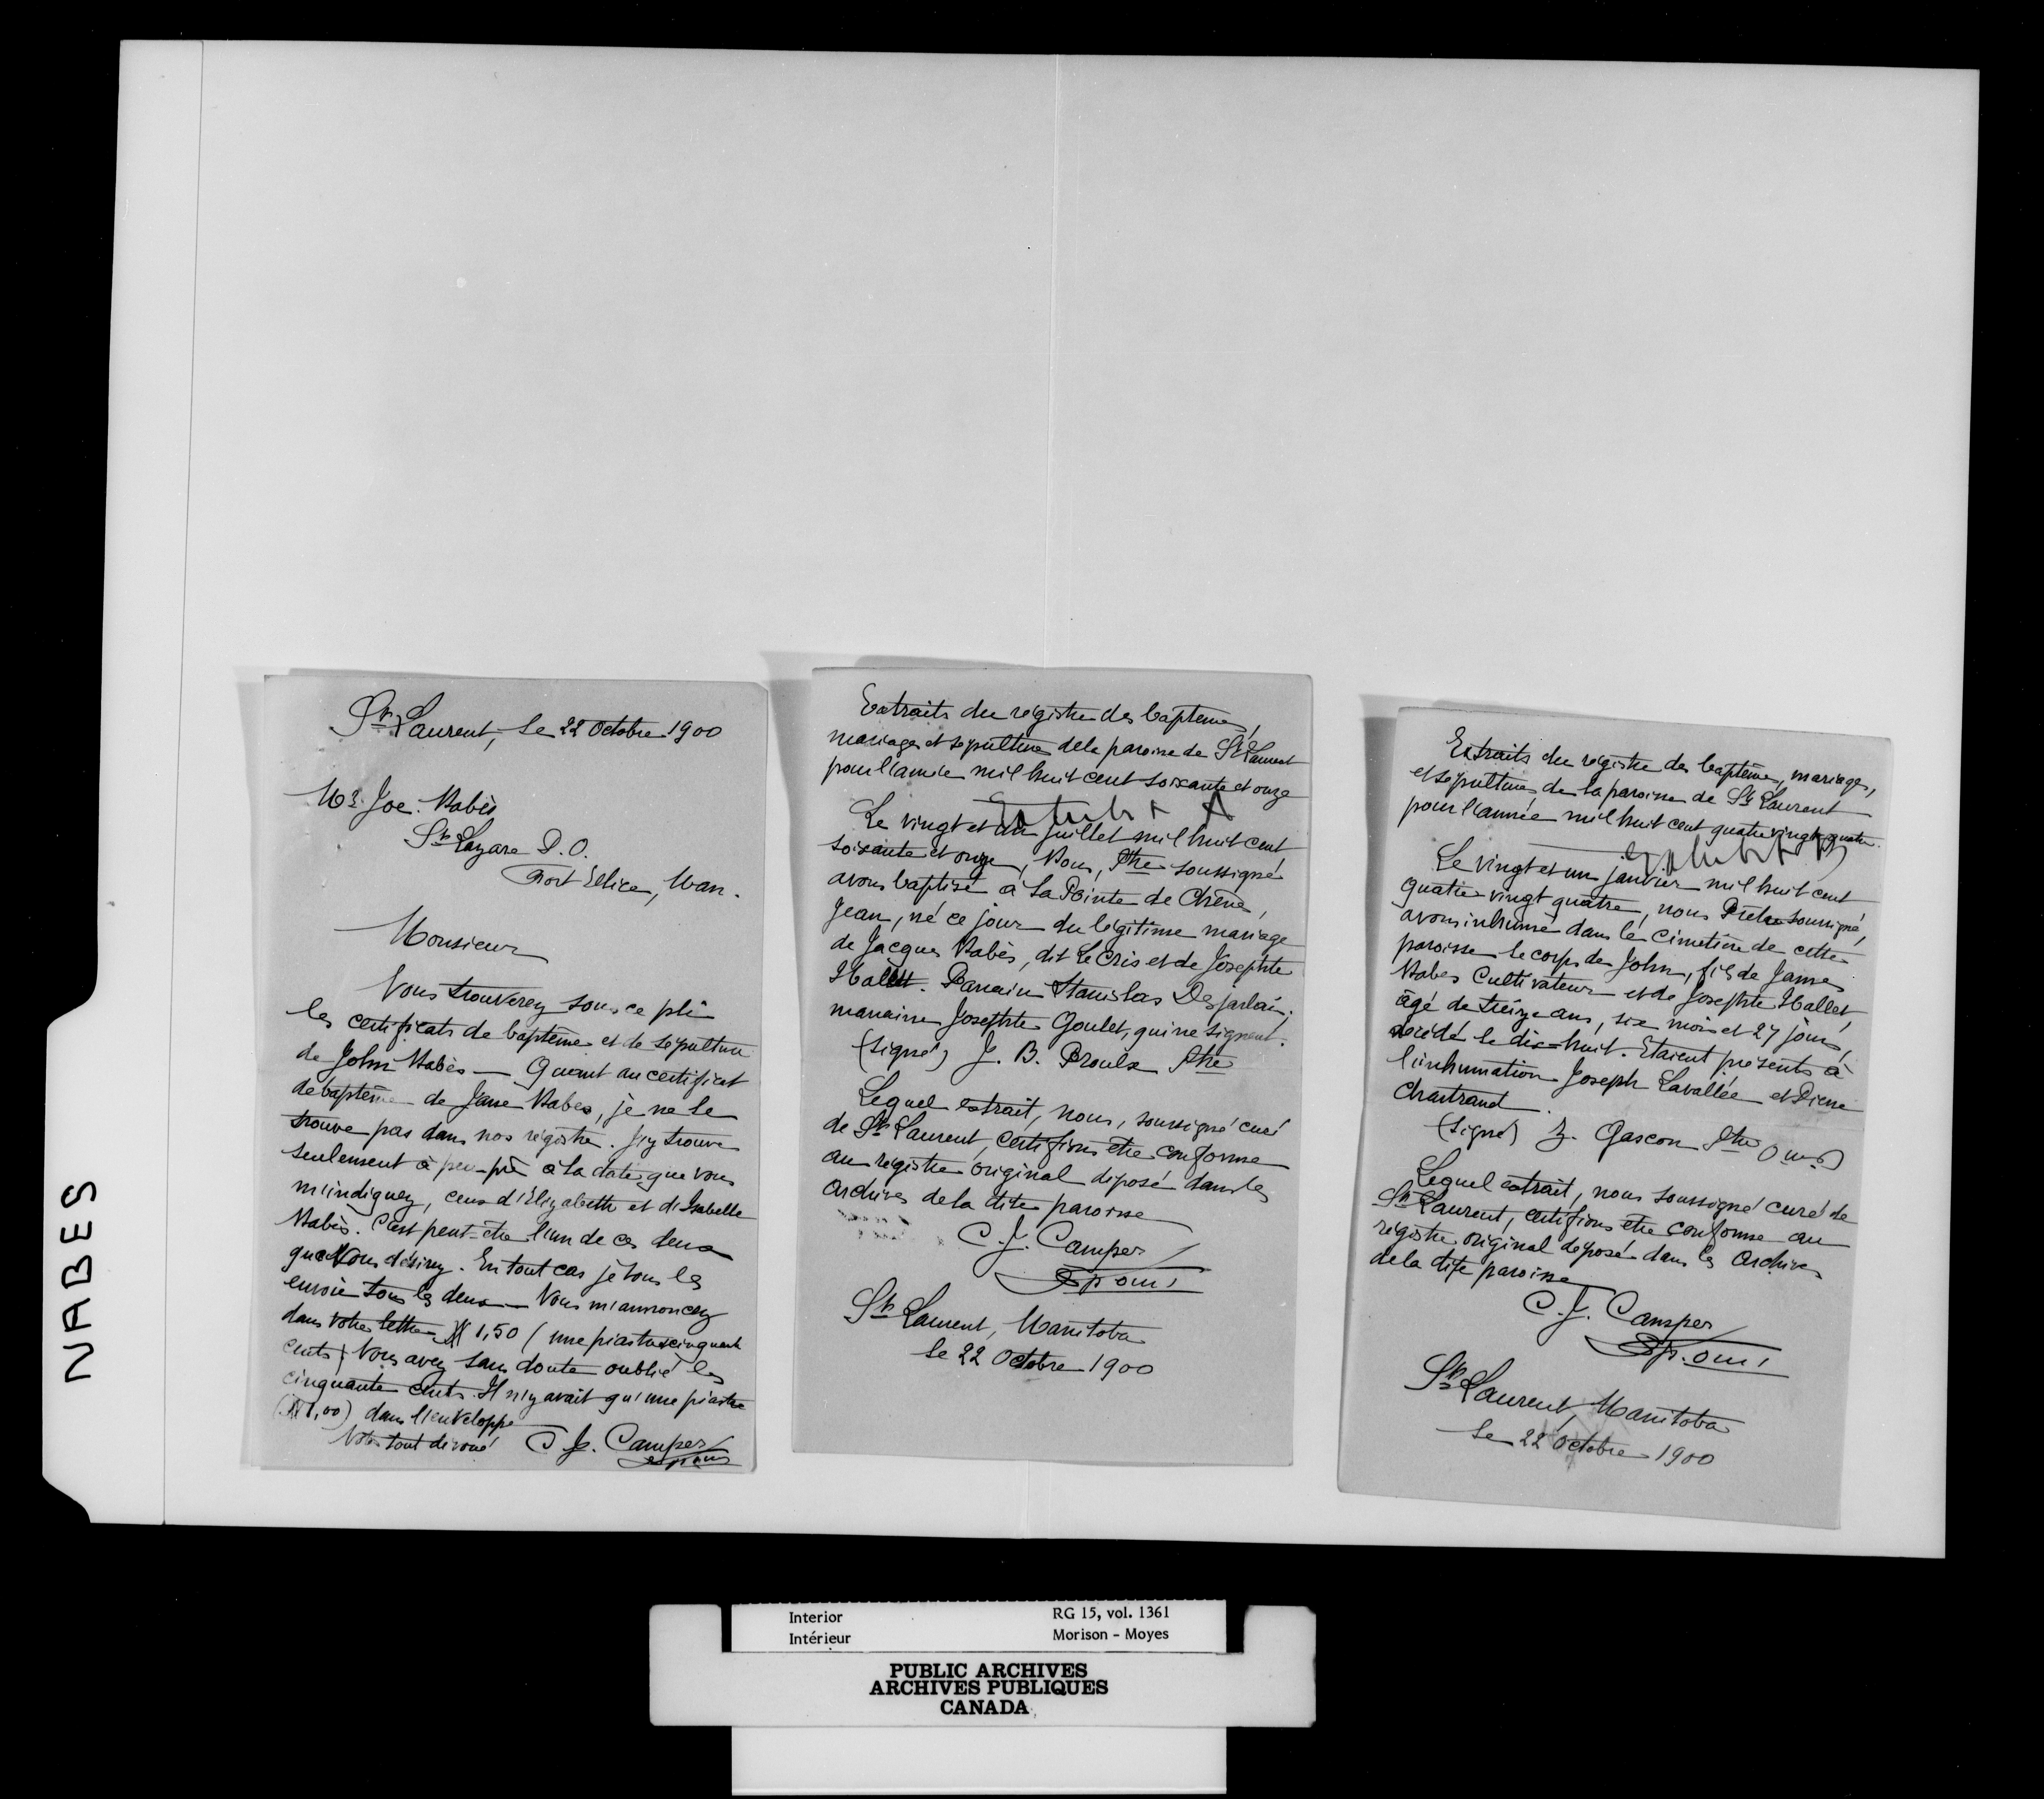 NABES
St Laurent, le 22 Octobre 1900
Mr. Joe. Nabès
St Lazare P.O.
Fort Ellice, Man.
Monsieur
Vous trouverez sous ce pli
les certificats de baptême et de sépulture
de John Nabès — Quant au certificat
de baptême de Jane Nabes, je ne le
trouve pas dans nos régistres. J'y trouve
seulement à peu-près à la date que vous
m'indiquez, ceux d'Elizabeth et d'Isabelle
Nabès. C'est peut-être l'un de ces deux
que Vous désirez. En tout cas je vous les
envoie tous les deux — Vous m'annoncez
dans votre lettre $ 1,50 (une piastre cinquante
cents) Vous avez sans doute oublié les
cinquante cents. Il n'y avait qu'une piastre
($1,00) dans l'enveloppe
Votre tout dévoué C. J. Camper
ptr omi
Extraits du régistre des baptêmes,
mariages et sépultures de la paroisse de St Laurent
pour l'année mil huit cent soixante et onze
Exhibit A
Le vingt et un juillet mil huit cent
soixante et onze, Nous, Ptre soussigné
avons baptisé à la Pointe de Chêne,
Jean, né ce jour du légitime mariage
de Jacques Nabès, dit Le Cris et de Josephte
Hallett. Parrain Stanislas Desjarlai,
marraine Josephte Goulet, qui ne signent.
(signé) J. B. Proulx Ptre
Lequel extrait, nous, soussigné curé
de St Laurent, certifions être conforme
au régistre original déposé dans les
archives de la dite paroisse
C. J. Camper
ptr omi
St Laurent, Manitoba
le 22 Octobre 1900
Extraits du régistre des baptêmes, mariages,
et sépultures de la paroisse de St Laurent
pour l'année mil huit cent quatre vingt quatre.
Exhibit B
Le vingt et un janvier mil huit cent
quatre vingt quatre, nous Prêtre soussigné,
avons inhumé dans le cimetière de cette
paroisse le corps de John, fils de James
Nabes Cultivateur et de Josephte Hallet,
âgé de treize ans, six mois et 27 jours,
décédé le dix-huit. Etaient présents à
l'inhumation Joseph Lavallée et Pierre
Chartrand.
(signé) Z. Gascon Ptre O.m.i.)
Lequel extrait, nous soussigné curé de
St Laurent, certifions être conforme au
régistre original déposé dans les Archives
de la dite paroisse
C. J. Camper
ptr. omi
St Laurent, Manitoba
le 22 Octobre 1900
Interior RG 15, vol. 1361
Intérieur Morison - Moyes
PUBLIC ARCHIVES
ARCHIVES PUBLIQUES
CANADA